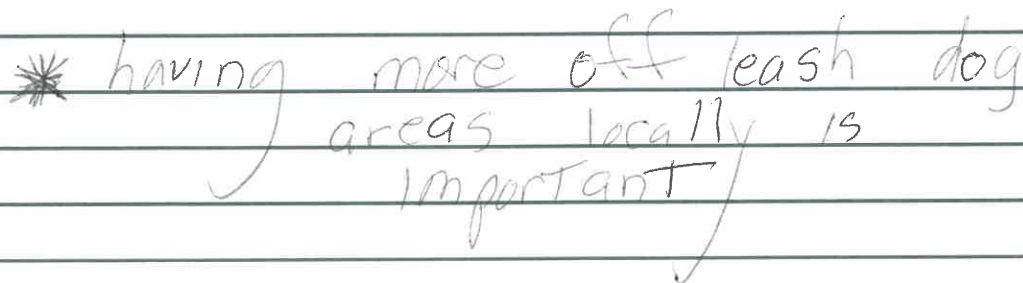 * having more off leash dog
areas locally is
important